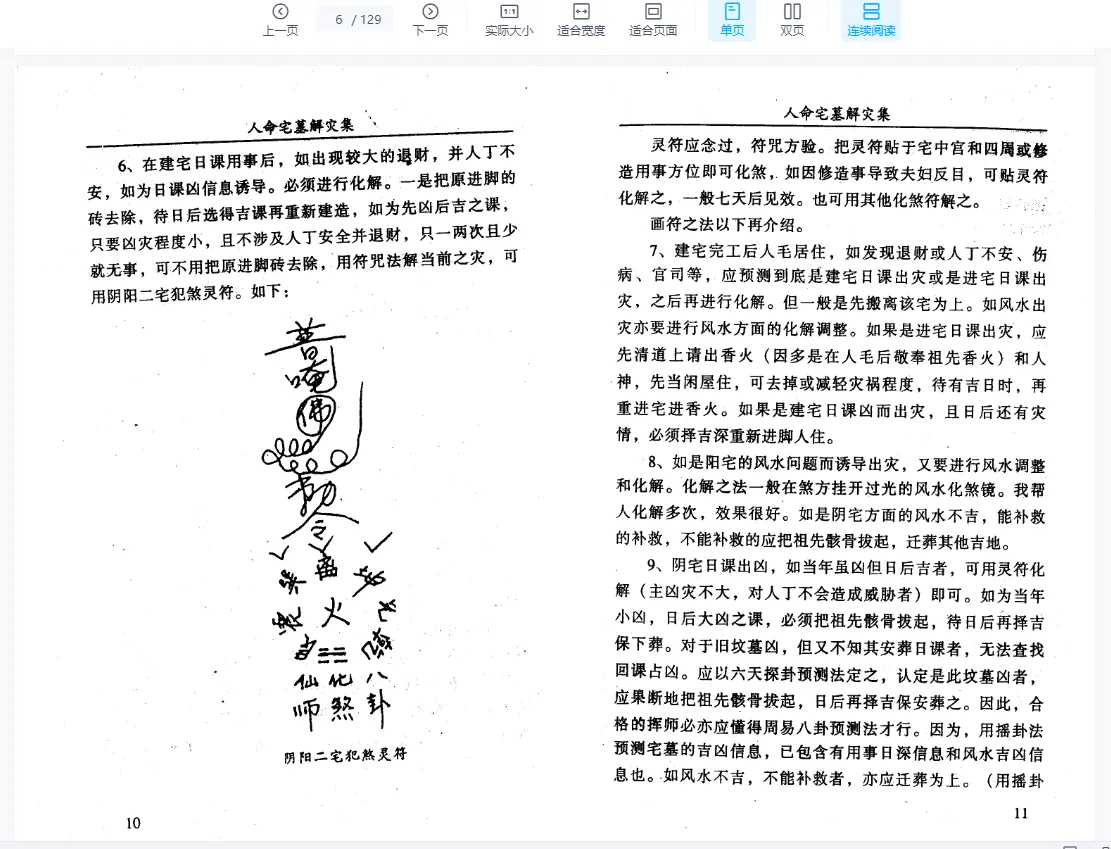 上一页
6 / 129
下一页
实际大小
适合宽度
适合页面
单页
双页
连续阅读
人命宅墓解灾集
6、在建宅日课用事后，如出现较大的退财，并人丁不
安，如为日课凶信息诱导。必须进行化解。一是把原进脚的
砖去除，待日后选得吉课再重新建造，如为先凶后吉之课，
只要凶灾程度小，且不涉及人丁安全并退财，只一两次且少
就无事，可不用把原进脚砖去除，用符咒法解当前之灾，可
用阴阳二宅犯煞灵符。如下：
唵
佛
勅
令
离
火
仙 化 八
师 煞 卦
阴阳二宅犯煞灵符
10
人命宅墓解灾集
灵符应念过，符咒方验。把灵符贴于宅中宫和四周或修
造用事方位即可化煞，如因修造事导致夫妇反目，可贴灵符
化解之，一般七天后见效。也可用其他化煞符解之。
画符之法以下再介绍。
7、建宅完工后人毛居住，如发现退财或人丁不安、伤
病、官司等，应预测到底是建宅日课出灾或是进宅日课出
灾，之后再进行化解。但一般是先搬离该宅为上。如风水出
灾亦要进行风水方面的化解调整。如果是进宅日课出灾，应
先清道上请出香火（因多是在人毛后敬奉祖先香火）和人
神，先当闲屋住，可去掉或减轻灾祸程度，待有吉日时，再
重进宅进香火。如果是建宅日课凶而出灾，且日后还有灾
情，必须择吉深重新进脚人住。
8、如是阳宅的风水问题而诱导出灾，又要进行风水调整
和化解。化解之法一般在煞方挂开过光的风水化煞镜。我帮
人化解多次，效果很好。如是阴宅方面的风水不吉，能补救
的补救，不能补救的应把祖先骸骨拔起，迁葬其他吉地。
9、阴宅日课出凶，如当年虽凶但日后吉者，可用灵符化
解（主凶灾不大，对人丁不会造成威胁者）即可。如为当年
小凶，日后大凶之课，必须把祖先骸骨拔起，待日后再择吉
保下葬。对于旧坟墓凶，但又不知其安葬日课者，无法查找
回课占凶。应以六天探卦预测法定之，认定是此坟墓凶者，
应果断地把祖先骸骨拔起，日后再择吉保安葬之。因此，合
格的挥师必亦应懂得周易八卦预测法才行。因为，用摇卦法
预测宅墓的吉凶信息，已包含有用事日深信息和风水吉凶信
息也。如风水不吉，不能补救者，亦应迁葬为上。（用摇卦
11